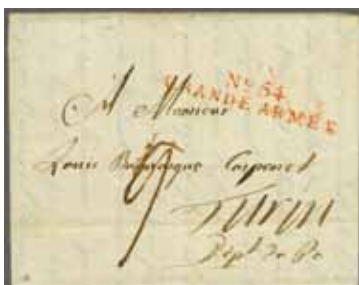 No. 54
GRANDE ARMÉE
A Monsieur
Louis
Turin
Dept. du Po